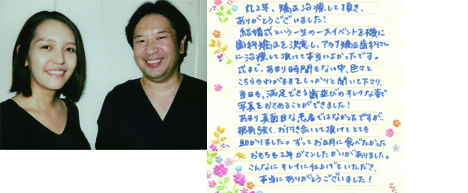 丸2年、矯正治療して頂き、
ありがとうございました！
結婚式という一生の一大イベントを機に
歯科矯正を決意し、アラタ矯正歯科さん
に治療して頂いて本当によかったです。
式まで、あまり時間もない中、色々と
こちらのわがままをしっかりと聞いて下さり、
当日も、満足できる歯並びのキレイな姿で
写真をおさめることができました！
あまり真面目な患者ではなかったですが、
根気強く、お付き合いして頂けてとても
助かりました。ずっとお正月に食べたかった
おもちも2年ガマンしたかいがありました。
こんなにキレイに仕上げていただき、
本当にありがとうございました！